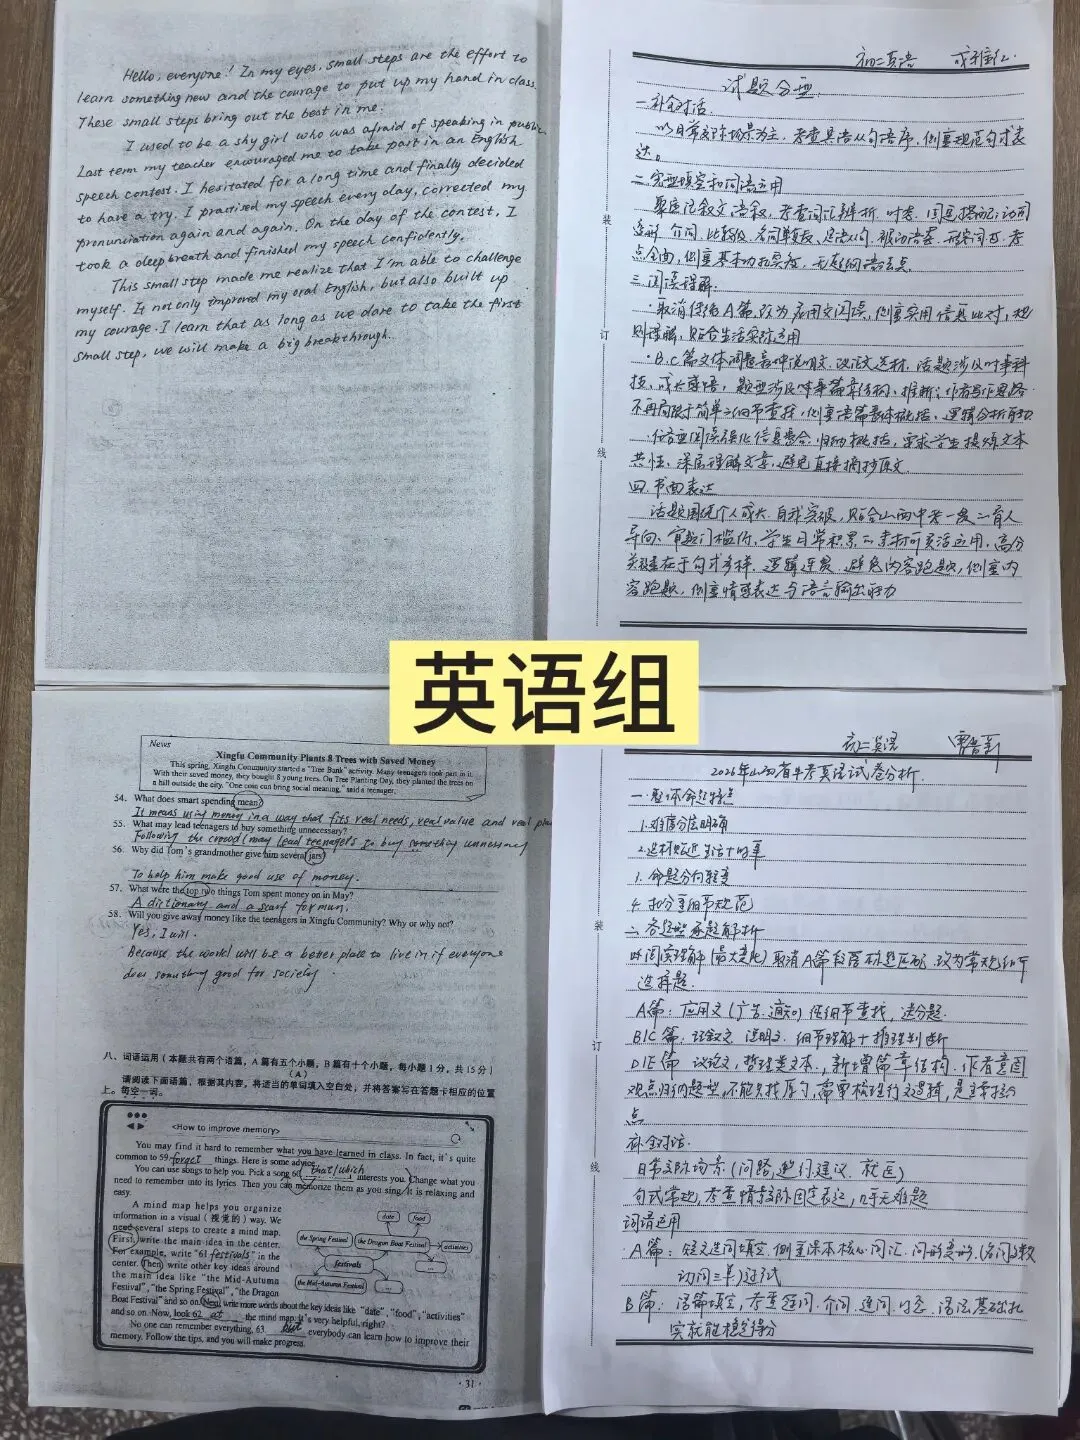 Hello, everyone! In my eyes, small steps are the effort to
learn something new and the courage to put up my hand in class.
These small steps bring out the best in me.
I used to be a shy girl who was afraid of speaking in public.
Last term my teacher encouraged me to take part in an English
speech contest. I hesitated for a long time and finally decided
to have a try. I practised my speech every day, corrected my
pronunciation again and again. On the day of the contest, I
took a deep breath and finished my speech confidently.
This small step made me realize that I'm able to challenge
myself. It not only improved my oral English, but also built up
my courage. I learn that as long as we dare to take the first
small step, we will make a big breakthrough.
初二英语
试题分析
一.补全对话
以日常交际场景为主,考查具语从句语序,侧重规范句式表
达。
二.完型填空和词语运用
点全面,侧重基本功扎实,无超纲语法点.
三.阅读理解:
·取消传统A篇,改为应用文阅读,侧重实用信息比对,规
则理解,贴合生活实际运用
·B.C篇文体调整各种说明文.议论文选材,话题涉及时事科
技、成长感悟,题型涉及对事篇章结构、推断、作者写作思路
不再局限于简单的细节查找,侧重语篇整体概括、逻辑分析
·任务型阅读强化信息整合.归纳概括,要求学生提炼文本
共性、深层理解文章,避免直接摘抄原文.
四.书面表达
话题围绕个人成长.自我突破,贴合山西中考一贯的育人
导向、审题门槛低,学生日常积累的素材可灵活运用,高分
关键在于句式多样.逻辑连贯.避免内容跑题,侧重内
容跑题,侧重情感表达与语言输出能力
装
订
线
英语组
News
Xingfu Community Plants 8 Trees with Saved Money
This spring, Xingfu Community started a "Tree Bank" activity. Many teenagers took part in it.
With their saved money, they bought 8 young trees. On Tree Planting Day, they planted the trees on
a hill outside the city. "One coin can bring social meaning," said a teenager.
54. What does smart spending mean?
It means using money in a way that fits real needs, real value and real
55. What may lead teenagers to buy something unnecessary?
Following the crowd may lead teenagers to buy something unnecessary
56. Why did Tom's grandmother give him several jars?
To help him make good use of money.
57. What were the top two things Tom spent money on in May?
A dictionary and a scarf for mum.
58. Will you give away money like the teenagers in Xingfu Community? Why or why not?
Yes, I will.
Because the world will be a better place to live in if everyone
does something good for society.
八、词语运用(本题共有两个语篇,A篇有五个小题,B篇有十个小题,每小题1分,共15分)
(A)
请阅读下面语篇,根据其内容,将适当的单词填入空白处,并将答案写在答题卡相应的位置
上。每空一词。
<How to improve memory>
You may find it hard to remember what you have learned in class. In fact, it's quite
common to 59 forget things. Here is some advice.
You can use songs to help you. Pick a song 60 that/which interests you. Change what you
need to remember into its lyrics. Then you can memorize them as you sing. It is relaxing and
easy.
A mind map helps you organize
information in a visual (视觉的) way. We
need several steps to create a mind map.
First, write the main idea in the center.
For example, write "61 festivals" in the
center. Then write other key ideas around
the main idea like "the Mid-Autumn
Festival", "the Spring Festival", "the Dragon
Boat Festival" and so on. Next, write more words about the key ideas like "date", "food", "activities"
and so on. Now, look 62 at the mind map. It's very helpful, right?
No one can remember everything, 63 but everybody can learn how to improve their
memory. Follow the tips, and you will make progress.
date
food
the Spring Festival
the Dragon Boat Festival
activities
festivals
...
the Mid-Autumn Festival
...
31
初二英语
2026年山西省中考英语试卷分析.
一.整体命题特点
1.难度分层明确
2.选材贴近生活+时事
3.命题方向转变
4.扣分重细节规范
二.各题型逐题解析
选择题.
A篇:应用文(广告.通知)纯细节查找,送分题.
B/C篇:记叙文.说明文.细节理解+推理判断
D/E篇 议论文,哲理类文本,新增篇章结构.作者意图
观点归纳题型,不能只找原句,需要梳理行文逻辑,是主要拉分
点
补全对话.
日常交际场景(问路.邀约.建议.就医)
句式常规,考查情景交际固定表达,几乎无难题
词语运用
·A篇:短文选词填空.侧重课本核心词汇.词形变形.(名词复数
动词三单)过去式
B篇:语篇填空,考查冠词.介词.连词.时态.语法基础扎
实就能稳定得分
装
订
线